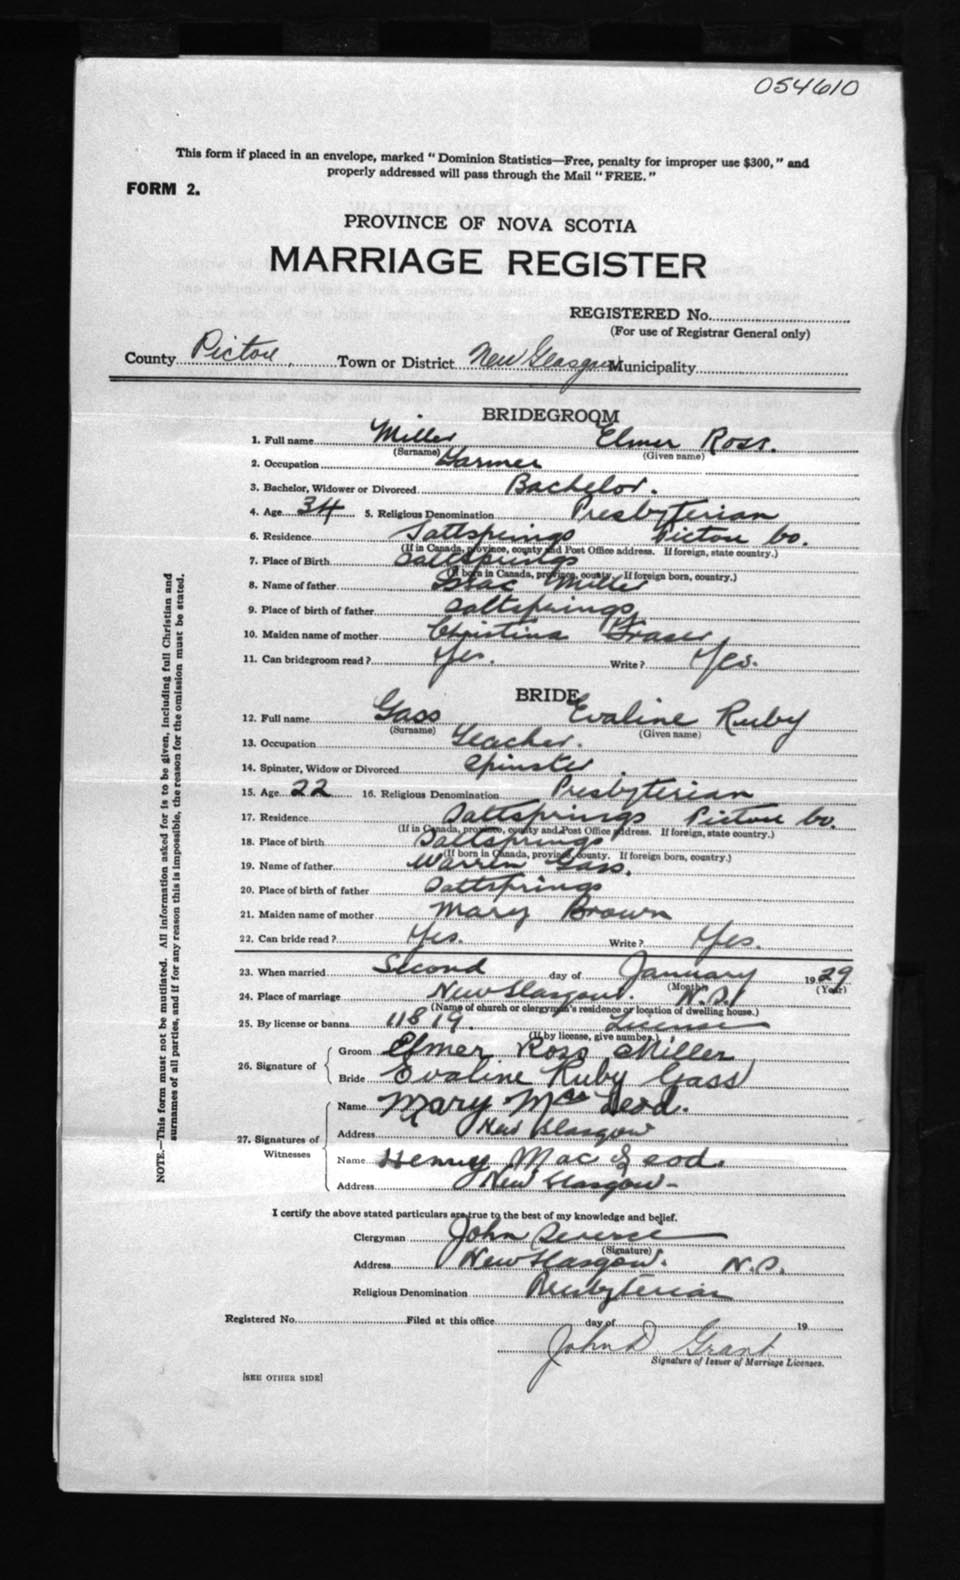 054610
This form if placed in an envelope, marked "Dominion Statistics—Free, penalty for improper use $300," and
properly addressed will pass through the Mail "FREE."
FORM 2.
PROVINCE OF NOVA SCOTIA
MARRIAGE REGISTER
REGISTERED No.
(For use of Registrar General only)
County Pictou, Town or District New Glasgow Municipality
BRIDEGROOM
1. Full name Miller Elmer Ross.
(Surname) (Given name)
2. Occupation Farmer
3. Bachelor, Widower or Divorced Bachelor.
4. Age 34 5. Religious Denomination Presbyterian
6. Residence Saltsprings Pictou Co.
(If in Canada, province, county and Post Office address. If foreign, state country.)
7. Place of Birth Saltsprings
(If born in Canada, province, county. If foreign born, country.)
8. Name of father Isaac Miller
9. Place of birth of father Saltsprings
10. Maiden name of mother Christina Fraser
11. Can bridegroom read? Yes. Write? Yes.
BRIDE
12. Full name Gass Evaline Ruby
(Surname) (Given name)
13. Occupation Teacher.
14. Spinster, Widow or Divorced Spinster
15. Age 22 16. Religious Denomination Presbyterian
17. Residence Saltsprings Pictou Co.
(If in Canada, province, county and Post Office address. If foreign, state country.)
18. Place of birth Saltsprings
(If born in Canada, province, county. If foreign born, country.)
19. Name of father Warren Gass.
20. Place of birth of father Saltsprings
21. Maiden name of mother Mary Brown
22. Can bride read? Yes. Write? Yes.
23. When married Second day of January 1929
(Month) (Year)
24. Place of marriage New Glasgow. N.S.
(Name of church or clergyman's residence or location of dwelling house.)
25. By license or banns 11819. License
(If by license, give number.)
26. Signature of Groom Elmer Ross Miller
Bride Evaline Ruby Gass
27. Signatures of Witnesses Name Mary MacLeod.
Address New Glasgow
Name Henry MacLeod.
Address New Glasgow-
I certify the above stated particulars are true to the best of my knowledge and belief.
Clergyman John
(Signature)
Address New Glasgow. N.S.
Religious Denomination Presbyterian
Registered No. Filed at this office day of 19
John D Grant
Signature of Issuer of Marriage Licenses.
[SEE OTHER SIDE]
NOTE.—This form must not be mutilated. All information asked for is to be given, including full Christian and
surnames of all parties, and if for any reason this is impossible, the reason for the omission must be stated.